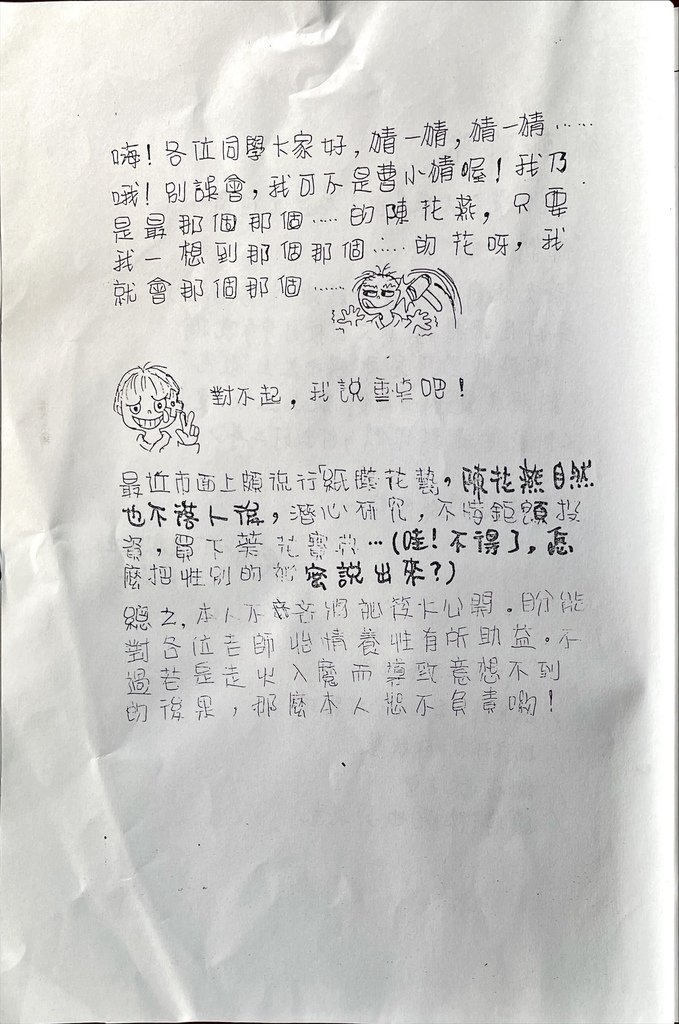 嗨！各位同學大家好，猜一猜，猜一猜……
哦！別誤會，我可不是曹小猜喔！我乃
是最那個那個……的陳花燕，只要
我一想到那個那個……的花呀，我
就會那個那個……
對不起，我說重點吧！
最近市面上頗流行「紙雕花藝」，陳花燕自然
也不落人後，潛心研究，不惜鉅額投
資，買下葵花寶典…(哇！不得了，怎
麼把性別的秘密說出來？)
總之，本人不吝將秘笈大公開。盼能
對各位老師怡情養性有所助益。不
過若是走火入魔而導致意想不到
的後果，那麼本人恕不負責喲！